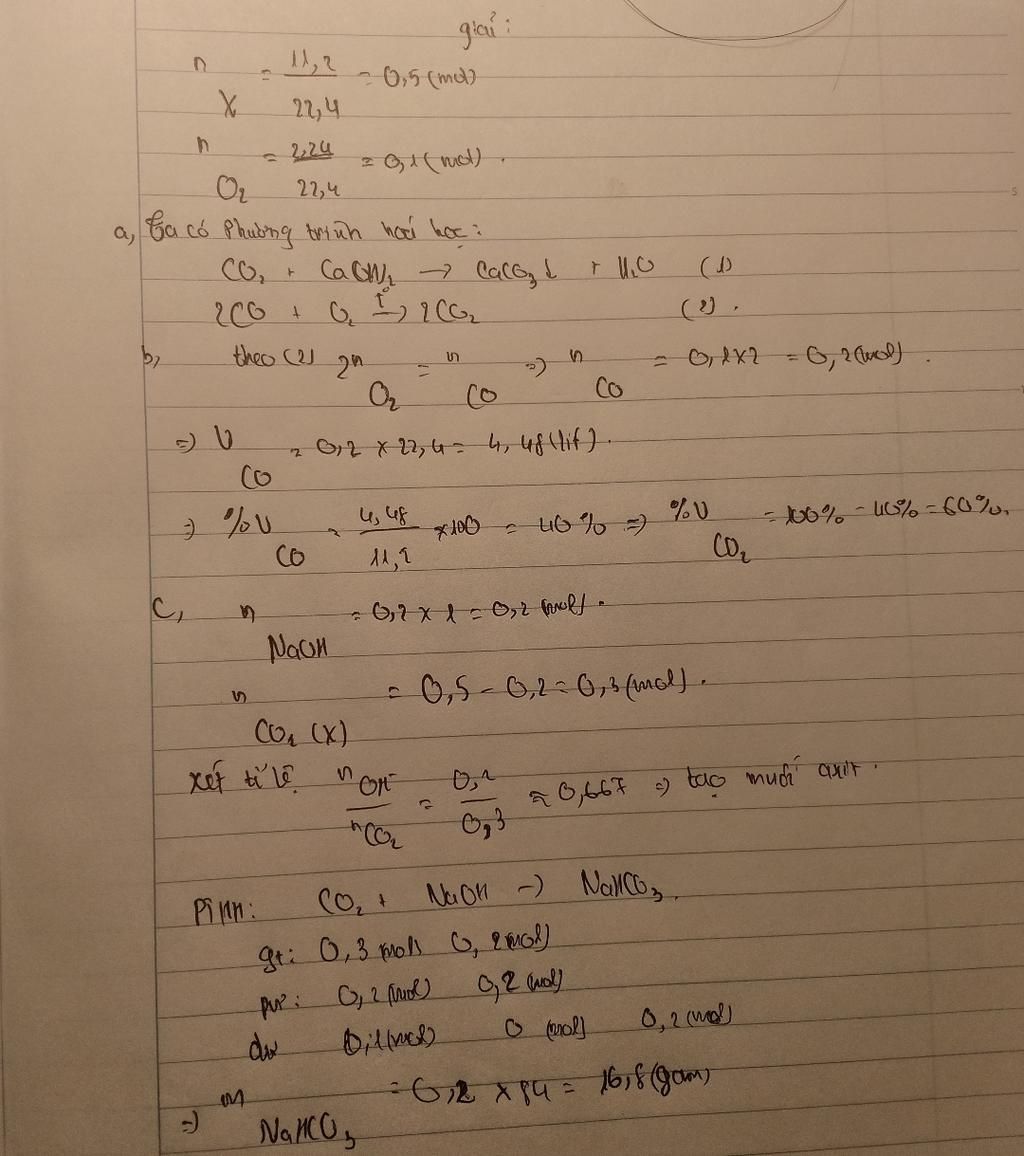 giải:
n X = 11,2 / 22,4 = 0,5 (mol)
n O2 = 2,24 / 22,4 = 0,1 (mol).
a, Ta có phương trình hoá học:
CO2 + CaOH2 → CaCO3↓ + H2O (1)
2CO + O2 t°→ 2CO2 (2).
b, theo (2) 2n O2 = n CO => n CO = 0,1 x 2 = 0,2 (mol).
=> V CO = 0,2 x 22,4 = 4,48 (lít).
=> %V CO = 4,48 / 11,2 x 100 = 40% => %V CO2 = 100% - 40% = 60%.
c, n NaOH = 0,2 x 1 = 0,2 (mol).
n CO2 (X) = 0,5 - 0,2 = 0,3 (mol).
xét tỉ lệ nOH- / nCO2 = 0,2 / 0,3 ≈ 0,667 => tạo muối axit.
PTHH: CO2 + NaOH → NaHCO3.
gt: 0,3 (mol) 0,2 (mol)
pư: 0,2 (mol) 0,2 (mol)
dư 0,1 (mol) 0 (mol) 0,2 (mol)
=> m NaHCO3 = 0,2 x 84 = 16,8 (gam)